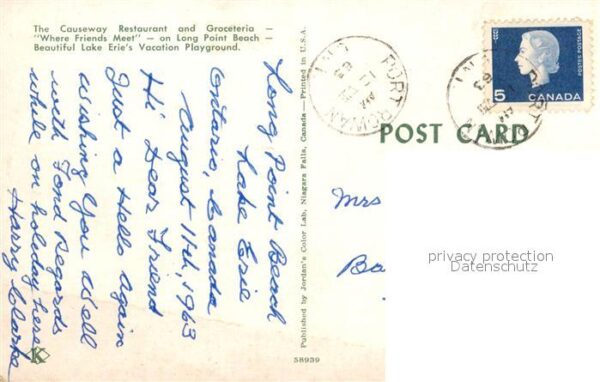 The Causeway Restaurant and Groceteria —
"Where Friends Meet" — on Long Point Beach —
Beautiful Lake Erie's Vacation Playground.
Long Point Beach
Lake Erie
Ontario, Canada
August 11th, 1963
Hi Dear Friend
Just a Hello Again
Wishing You Well
with Fond Regards
while on holiday here
Harry Clarke
K
Published by Jordan's Color Lab, Niagara Falls, Canada — Printed in U.S.A.
58939
PORT ROWAN
5
CANADA
POSTES POSTAGE
POST CARD
Mrs
Ba
privacy protection
Datenschutz